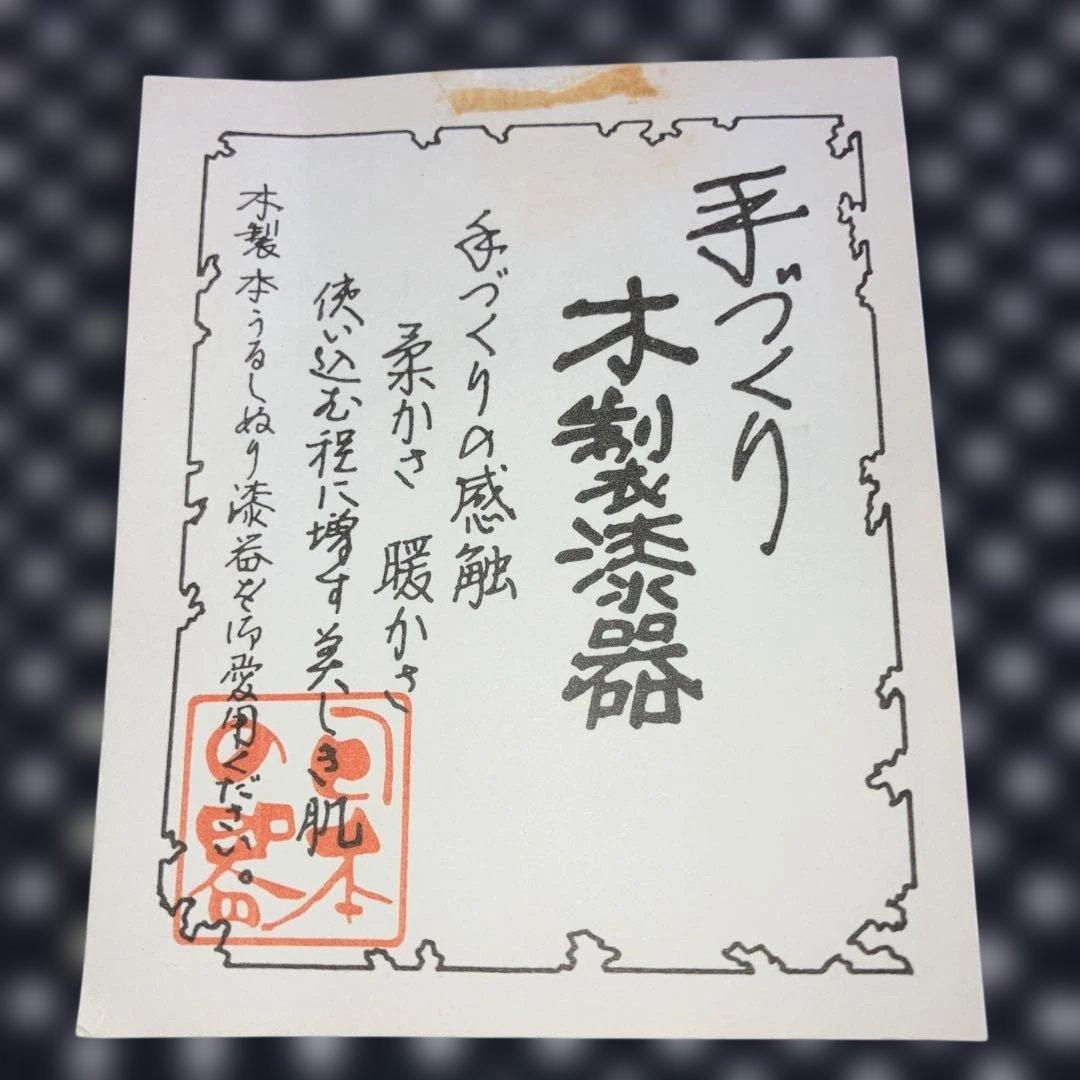 手づくり
木製漆器
手づくりの感触
柔かさ 暖かさ
使い込む程に増す美しき肌
木製本うるしぬり漆器を御愛用ください。
日本
の器